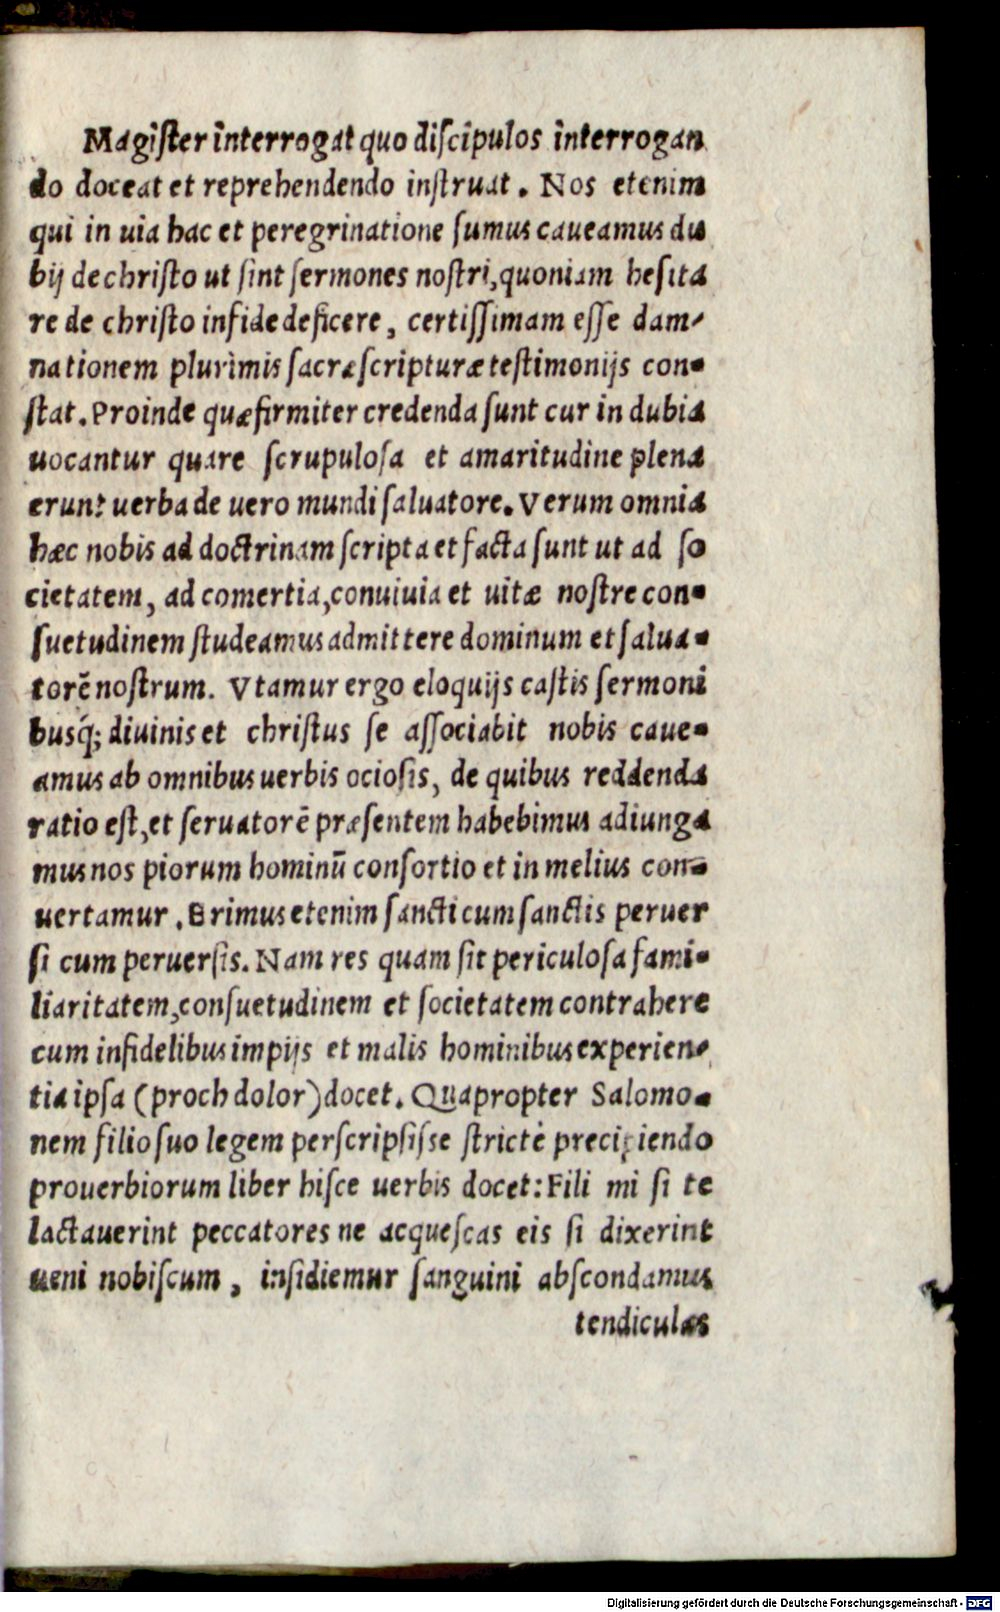 Magiſter interrogat quo diſcipulos interrogan
do doceat et reprehendendo inſtruat. Nos etenim
qui in uia hac et peregrinatione ſumus caueamus du
bij de chriſto ut ſint ſermones noſtri, quoniam heſita
re de chriſto in fide deficere, certiſſimam eſſe dam-
nationem plurimis ſacræ ſcripturæ teſtimonijs con-
ſtat. Proinde quæ firmiter credenda ſunt cur in dubia
uocantur quare ſcrupuloſa et amaritudine plena
erunt uerba de uero mundi ſaluatore. Verum omnia
hæc nobis ad doctrinam ſcripta et facta ſunt ut ad ſo
cietatem, ad comertia, conuiuia et uitæ noſtre con-
ſuetudinem ſtudeamus admittere dominum et ſalua-
torẽ noſtrum. Vtamur ergo eloquijs caſtis ſermoni
busq́; diuinis et chriſtus ſe aſſociabit nobis caue-
amus ab omnibus uerbis ocioſis, de quibus reddenda
ratio eſt, et ſeruatorẽ præſentem habebimus adiunga
mus nos piorum hominũ conſortio et in melius con-
uertamur. Erimus etenim ſancti cum ſanctis peruer
ſi cum peruerſis. Nam res quam ſit periculoſa fami-
liaritatem, conſuetudinem et ſocietatem contrahere
cum infidelibus impijs et malis hominibus experien-
tia ipſa (proch dolor) docet. Quapropter Salomo-
nem filio ſuo legem perſcripſiſse ſtrictè precipiendo
prouerbiorum liber hiſce uerbis docet: Fili mi ſi te
lactauerint peccatores ne acqueſcas eis ſi dixerint
ueni nobiſcum, inſidiemur ſanguini abſcondamus
tendiculas
Digitalisierung gefördert durch die Deutsche Forschungsgemeinschaft - DFG